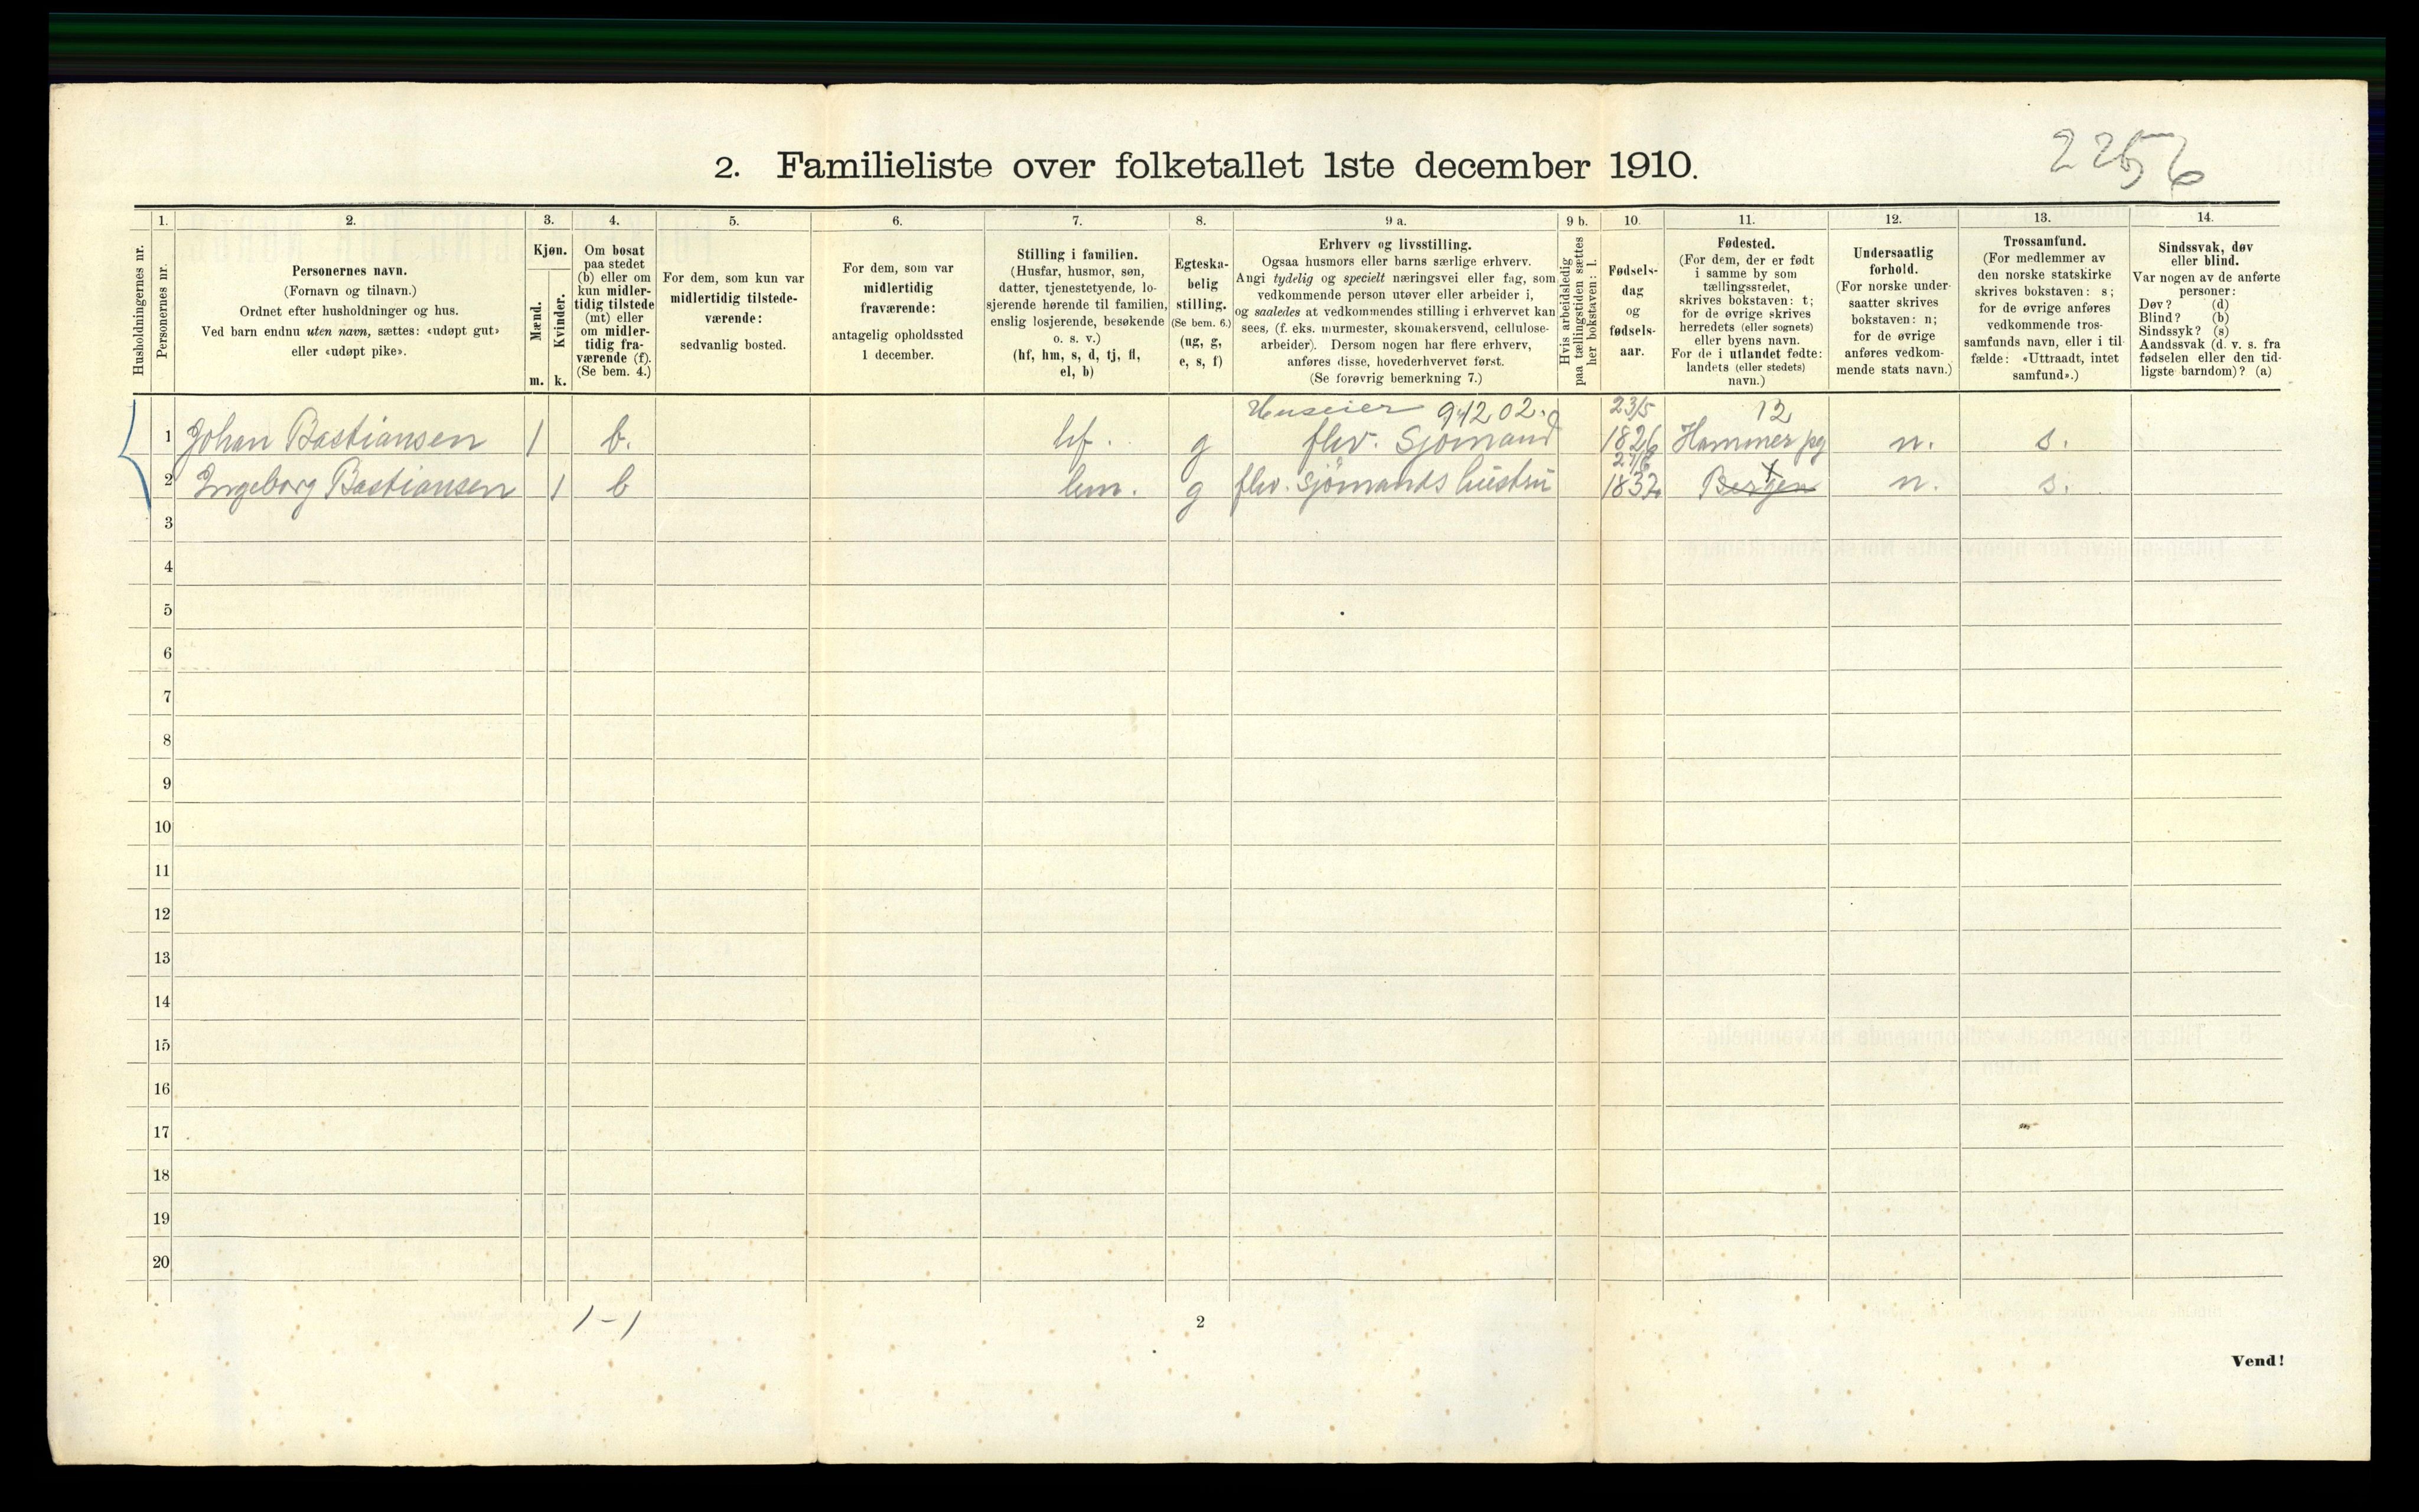 2256
2. Familieliste over folketallet 1ste december 1910.
Husholdningernes nr.
1.
Personernes nr.
2.
Personernes navn.
(Fornavn og tilnavn.)
Ordnet efter husholdninger og hus.
Ved barn endnu uten navn, sættes: «udøpt gut»
eller «udøpt pike».
3.
Kjøn.
Mænd.
Kvinder.
m.
k.
4.
Om bosat
paa stedet
(b) eller om
kun midler-
tidig tilstede
(mt) eller
om midler-
tidig fra-
værende (f).
(Se bem. 4.)
5.
For dem, som kun var
midlertidig tilstede-
værende:
sedvanlig bosted.
6.
For dem, som var
midlertidig
fraværende:
antagelig opholdssted
1 december.
7.
Stilling i familien.
(Husfar, husmor, søn,
datter, tjenestetyende, lo-
sjerende hørende til familien,
enslig losjerende, besøkende
o. s. v.)
(hf, hm, s, d, tj, fl,
el, b)
8.
Egteska-
belig
stilling.
(Se bem. 6.)
(ug, g,
e, s, f)
9 a.
Erhverv og livsstilling.
Ogsaa husmors eller barns særlige erhverv.
Angi tydelig og specielt næringsvei eller fag, som
vedkommende person utøver eller arbeider i,
og saaledes at vedkommendes stilling i erhvervet kan
sees, (f. eks. murmester, skomakersvend, cellulose-
arbeider). Dersom nogen har flere erhverv,
anføres disse, hovederhvervet først.
(Se forøvrig bemerkning 7.)
9 b.
Hvis arbeidsledig
paa tællingstiden sættes
her bokstaven: l.
10.
Fødsels-
dag
og
fødsels-
aar.
11.
Fødested.
(For dem, der er født
i samme by som
tællingsstedet,
skrives bokstaven: t;
for de øvrige skrives
herredets (eller sognets)
eller byens navn.
For de i utlandet fødte:
landets (eller stedets)
navn.)
12.
Undersaatlig
forhold.
(For norske under-
saatter skrives
bokstaven: n;
for de øvrige
anføres vedkom-
mende stats navn.)
13.
Trossamfund.
(For medlemmer av
den norske statskirke
skrives bokstaven: s;
for de øvrige anføres
vedkommende tros-
samfunds navn, eller i til-
fælde: «Uttraadt, intet
samfund».)
14.
Sindssvak, døv
eller blind.
Var nogen av de anførte
personer:
Døv? (d)
Blind? (b)
Sindssyk? (s)
Aandssvak (d. v. s. fra
fødselen eller den tid-
ligste barndom)? (a)
Huseier 9,12 02. 23/5 12
1 Johan Bastiansen 1 b. hf. g flhv. Sjömand 1826 Hammer pg n. s.
2 Ingeborg Bastiansen 1 b hm. g flhv. Sjömands hustru 1832 Bergen t n. s.
3
4
5
6
7
8
9
10
11
12
13
14
15
16
17
18
19
20
1-1
2
Vend!